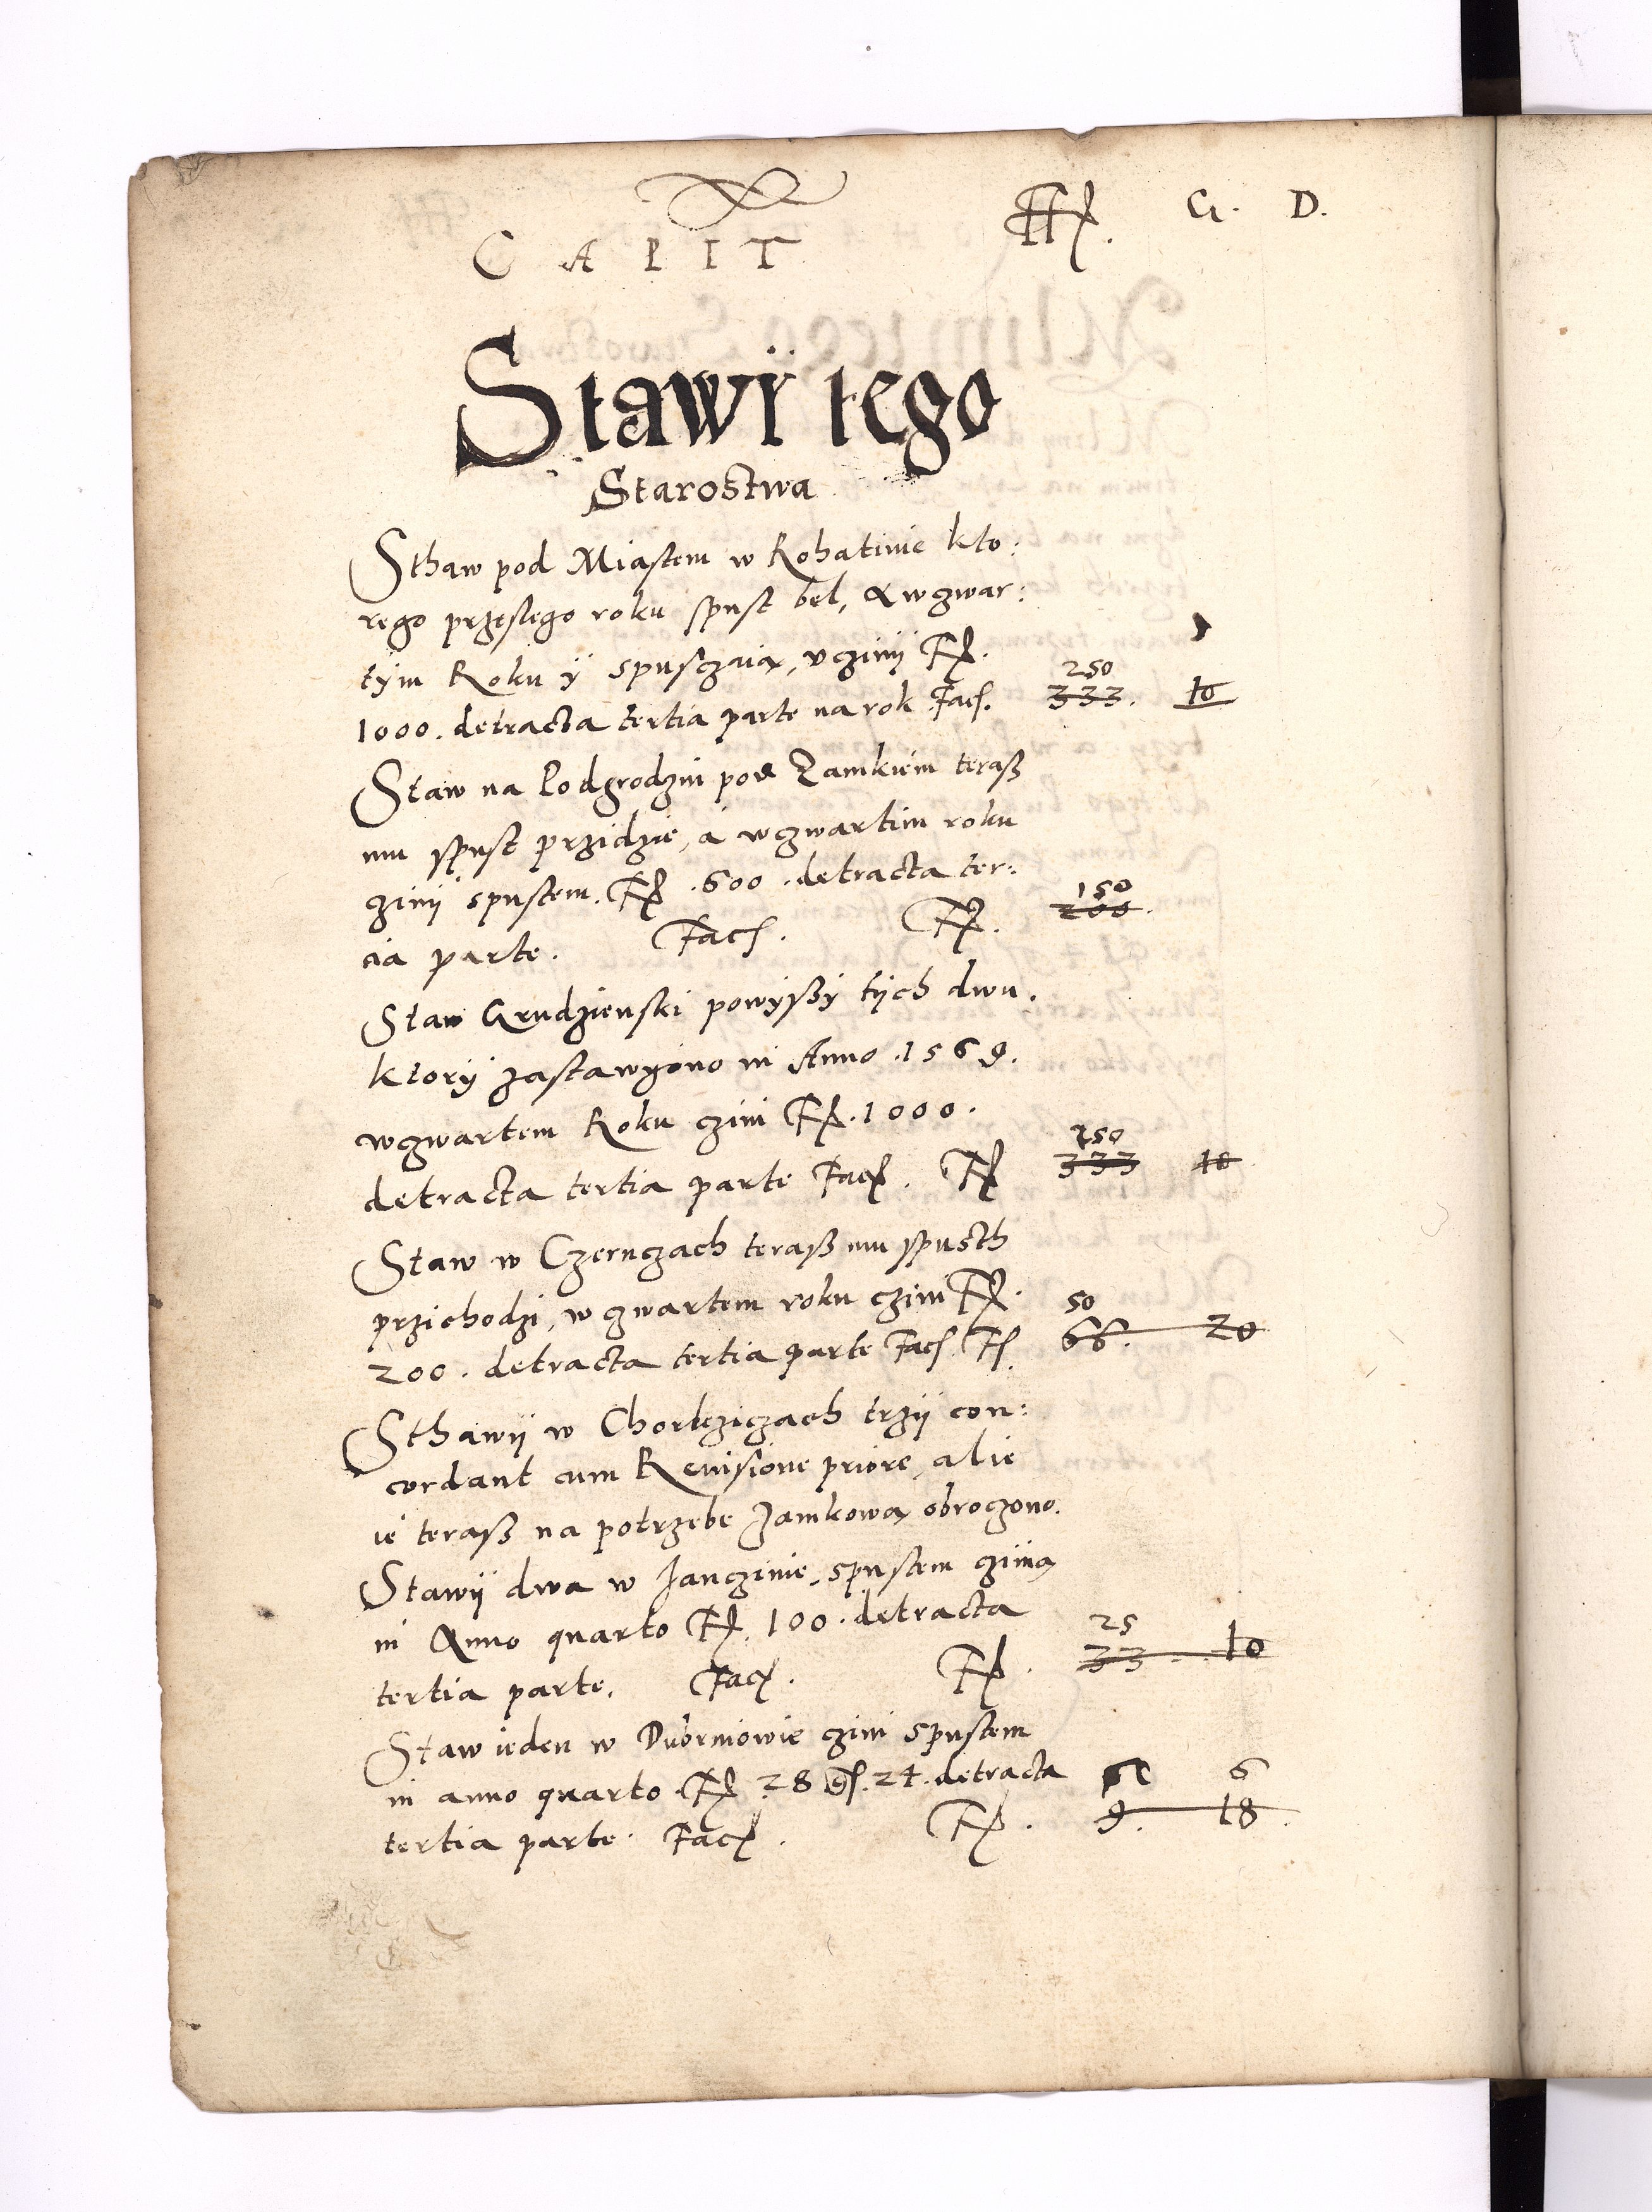 C A P I T      Fl.   G.   D.
Stawÿ tego
Starostwa
Sthaw pod Miastem w Rohatinie kto:
rego przeslego roku spust bel, a w czwar:
tÿm Roku ÿ spusczaią, vczinÿ Fl.
250
1000. detracta tertia parte na rok. Facſ. 333. 10
Staw na Podgrodziu pod Zamkiem teraß
mu spust przidzie, a w czwartim roku
czinÿ spustem. Fl. 600. detracta ter:
150
cia parte. Facſ. Fl. 200.
Staw Grudzienski powÿßÿ tÿch dwu,
ktorÿ zastawyono in Anno .1569.
w czwartem Roku czini Fl. 1000.
250
detracta tertia parte Facſ. Fl 333 10
Staw w Czernczach teraß mu spusth
przichodzi, w czwartem roku czini Fl.
50
200. detracta tertia parte Facſ. Fl. 66. 20
Sthawÿ w Chorbcziczach trzÿ con:
cordant cum Reuisione priore, alie
ie teraß na potrzebe Zamkowa obroczono.
Stawÿ dwa w Janczinie, spustem czinią
in Anno quarto Fl. 100. detracta
25
tertia parte. Facſ. Fl. 33 10
Staw ieden w Dubrniowie czini spustem
in anno quarto Fl. 28 gſ. 24. detracta 6
tertia parte. Facſ. Fl. 9. 18.